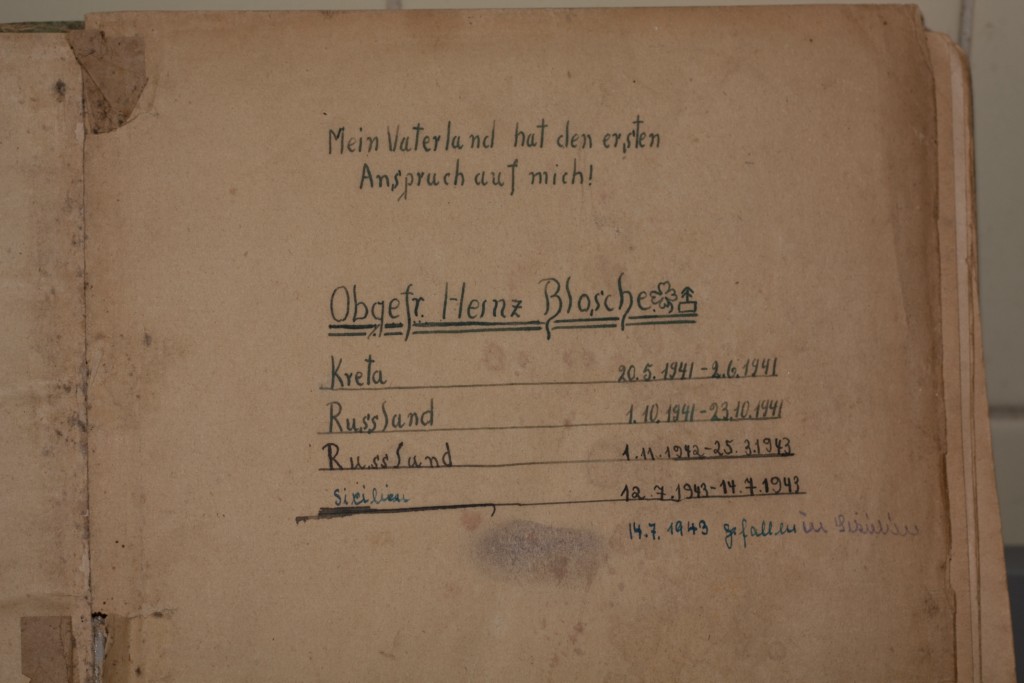 Mein Vaterland hat den ersten
Anspruch auf mich!
Obgefr. Heinz Blosche
Kreta 20.5.1941-2.6.1941
Russland 1.10.1941-23.10.1941
Russland 1.11.1942-25.3.1943
Sizilien 12.7.1943-14.7.1943
14.7.1943 gefallen in Sizilien